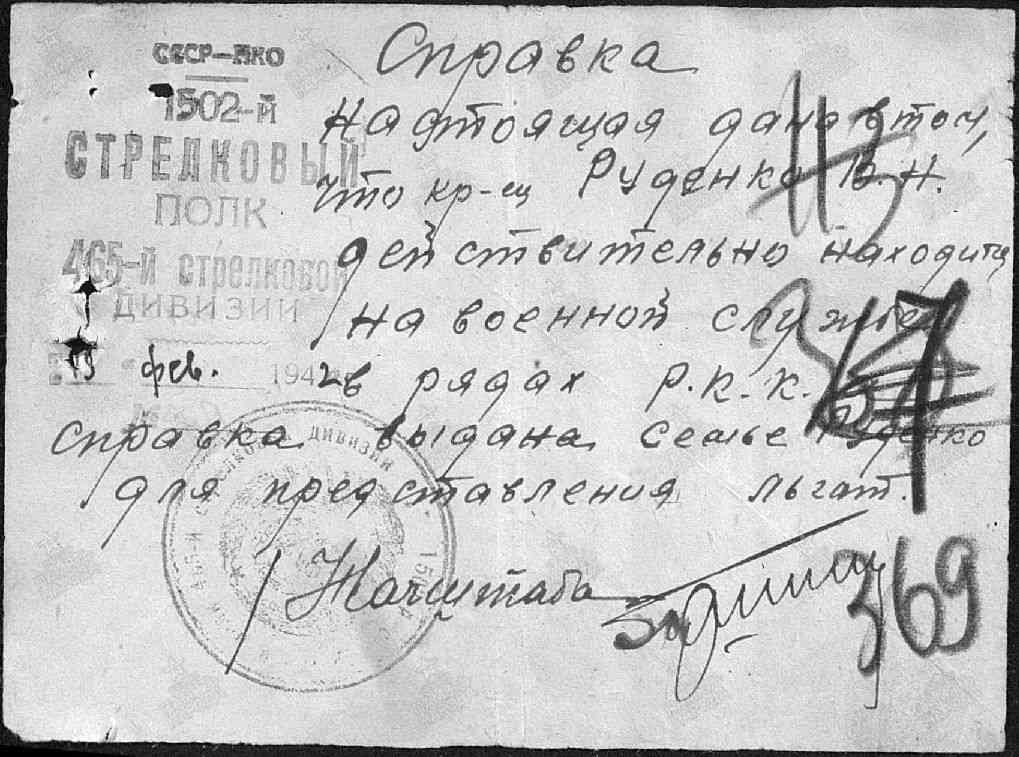 СССР-НКО
1502-й
СТРЕЛКОВЫЙ
ПОЛК
465-й стрелковой
ДИВИЗИИ
фев. 1942
Справка
Настоящая дана в том,
что кр-ц Руденко В.Н.
действительно находится
на военной службе
в рядах Р.К.К.
справка выдана семье Руденко
для представления льгат.
Начштаба
369